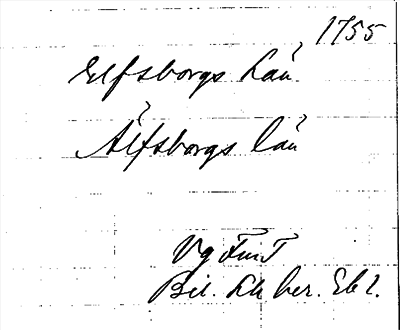 1755
Elfsborgs Län.
Älfsborgs län
Vg FmT
Bil. Lh ber.